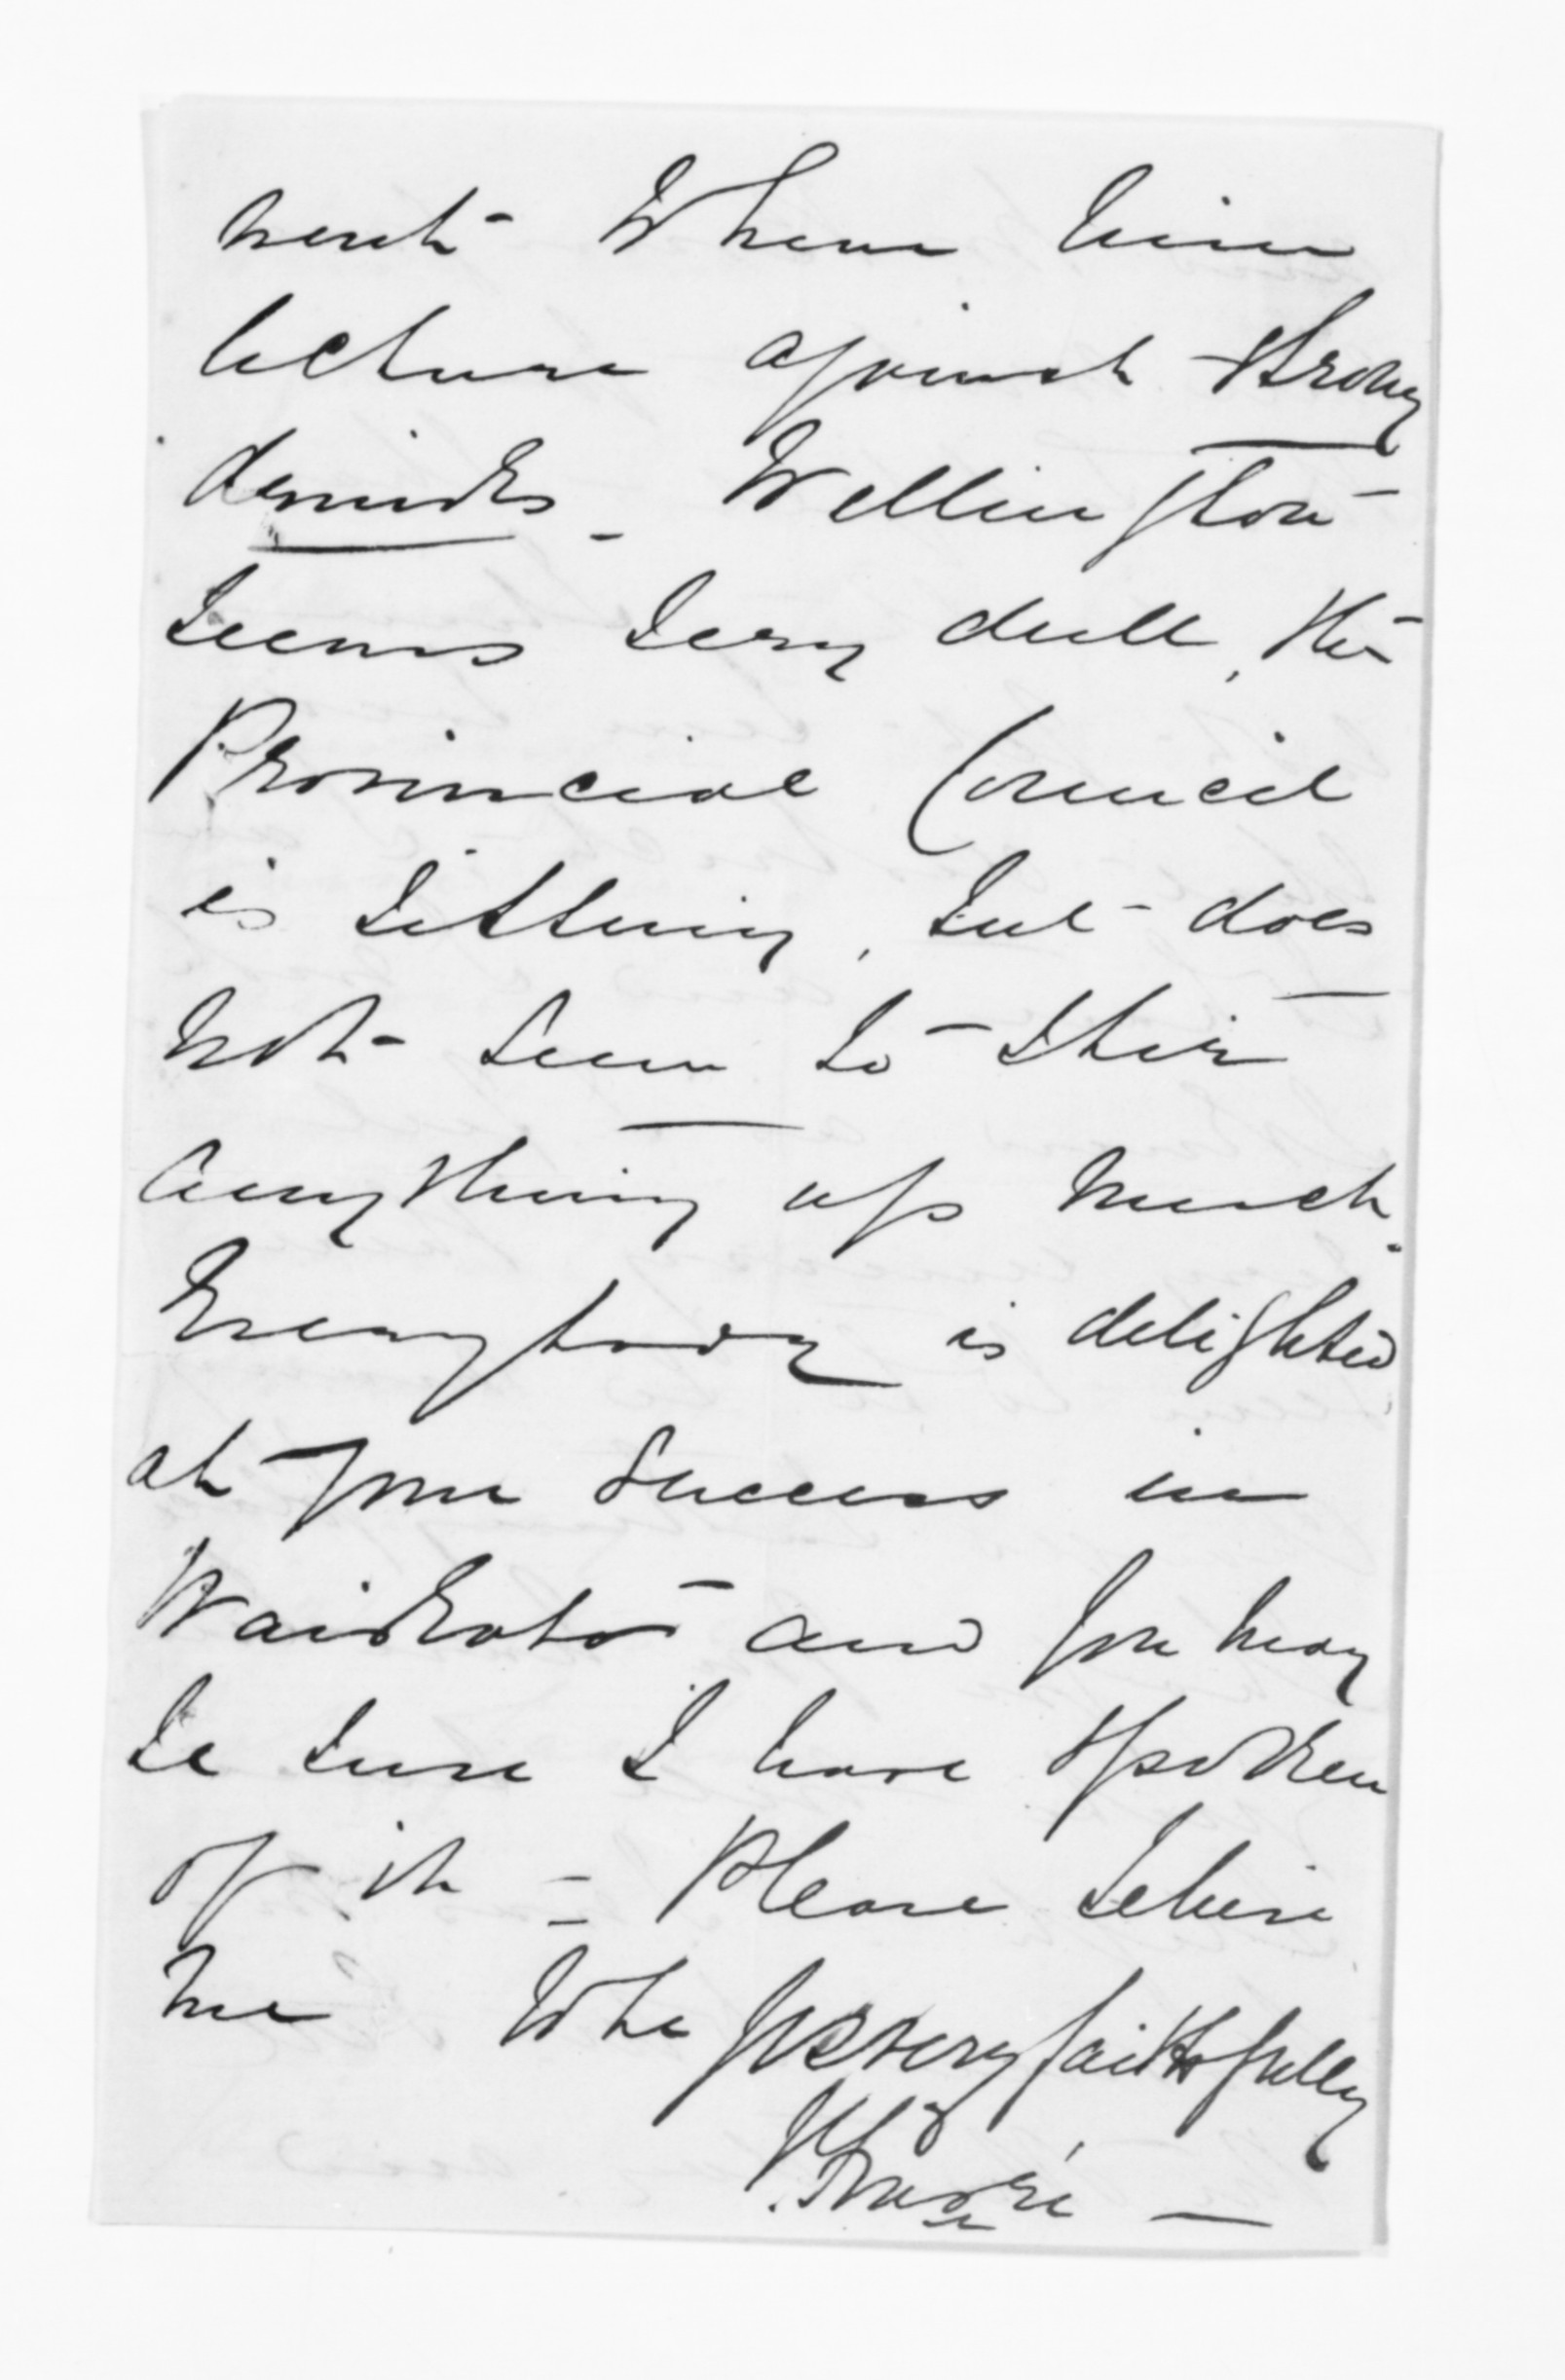 to hear him
lecture against strong
drinks – Wellington
seems very dull, the
Provincial Council
is sitting, but does
not seem to stir
anything up much.
Everybody is delighted
at your success in
Waikato and you may
be sure I have spoken
of it = Please believe
me to be yrs very faithfully